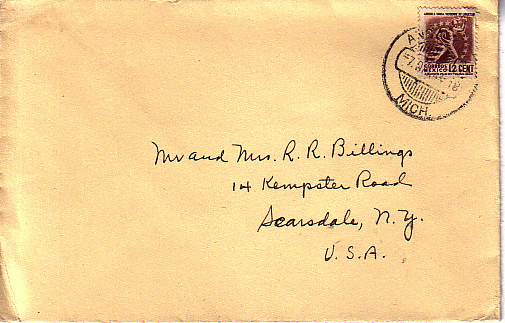 CORREOS
MEXICO
12 CENT
MICH.
Mr and Mrs. R. R. Billings
14 Kempster Road
Scarsdale, N.Y.
U.S.A.